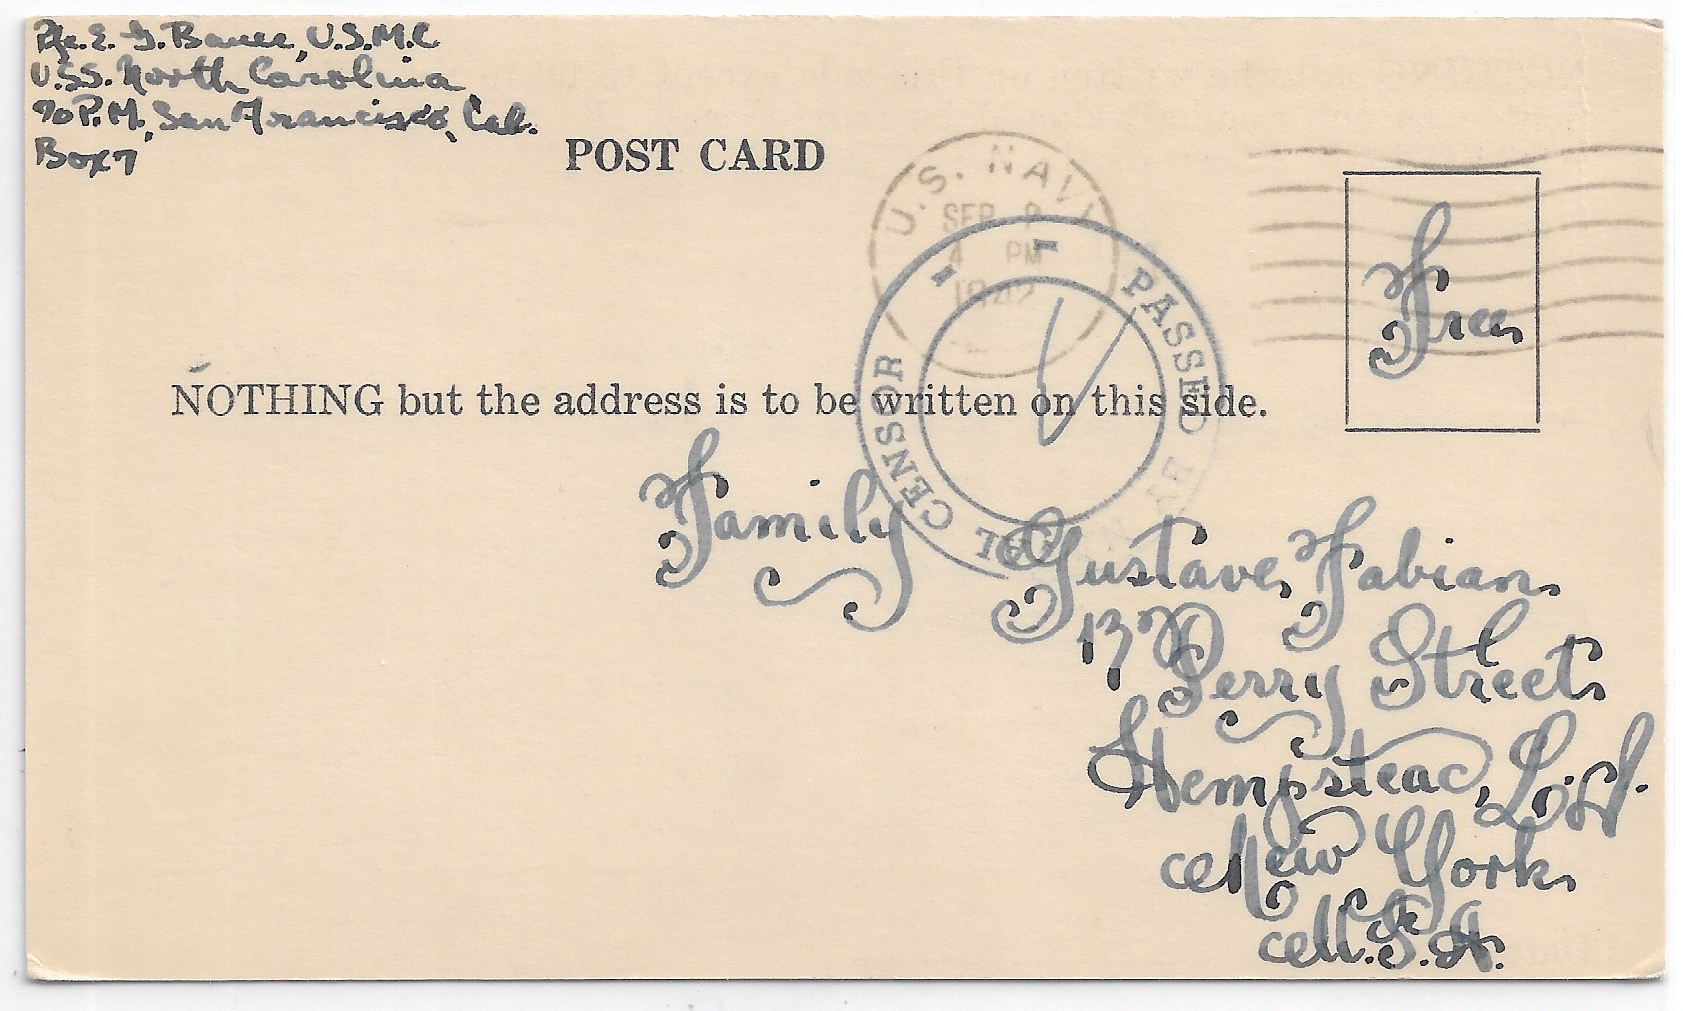 Pfc. E. G. Bauer, U.S.M.C
U.S.S. North Carolina
℅ P.M., San Francisco, Cal.
Box 7
POST CARD
U.S. NAVY
SEP 9
4 PM
1942
PASSED BY NAVAL CENSOR
Free
NOTHING but the address is to be written on this side.
Family
Gustave Fabian
17 Perry Street
Hempstead, L.I.
New York
U.S.A.